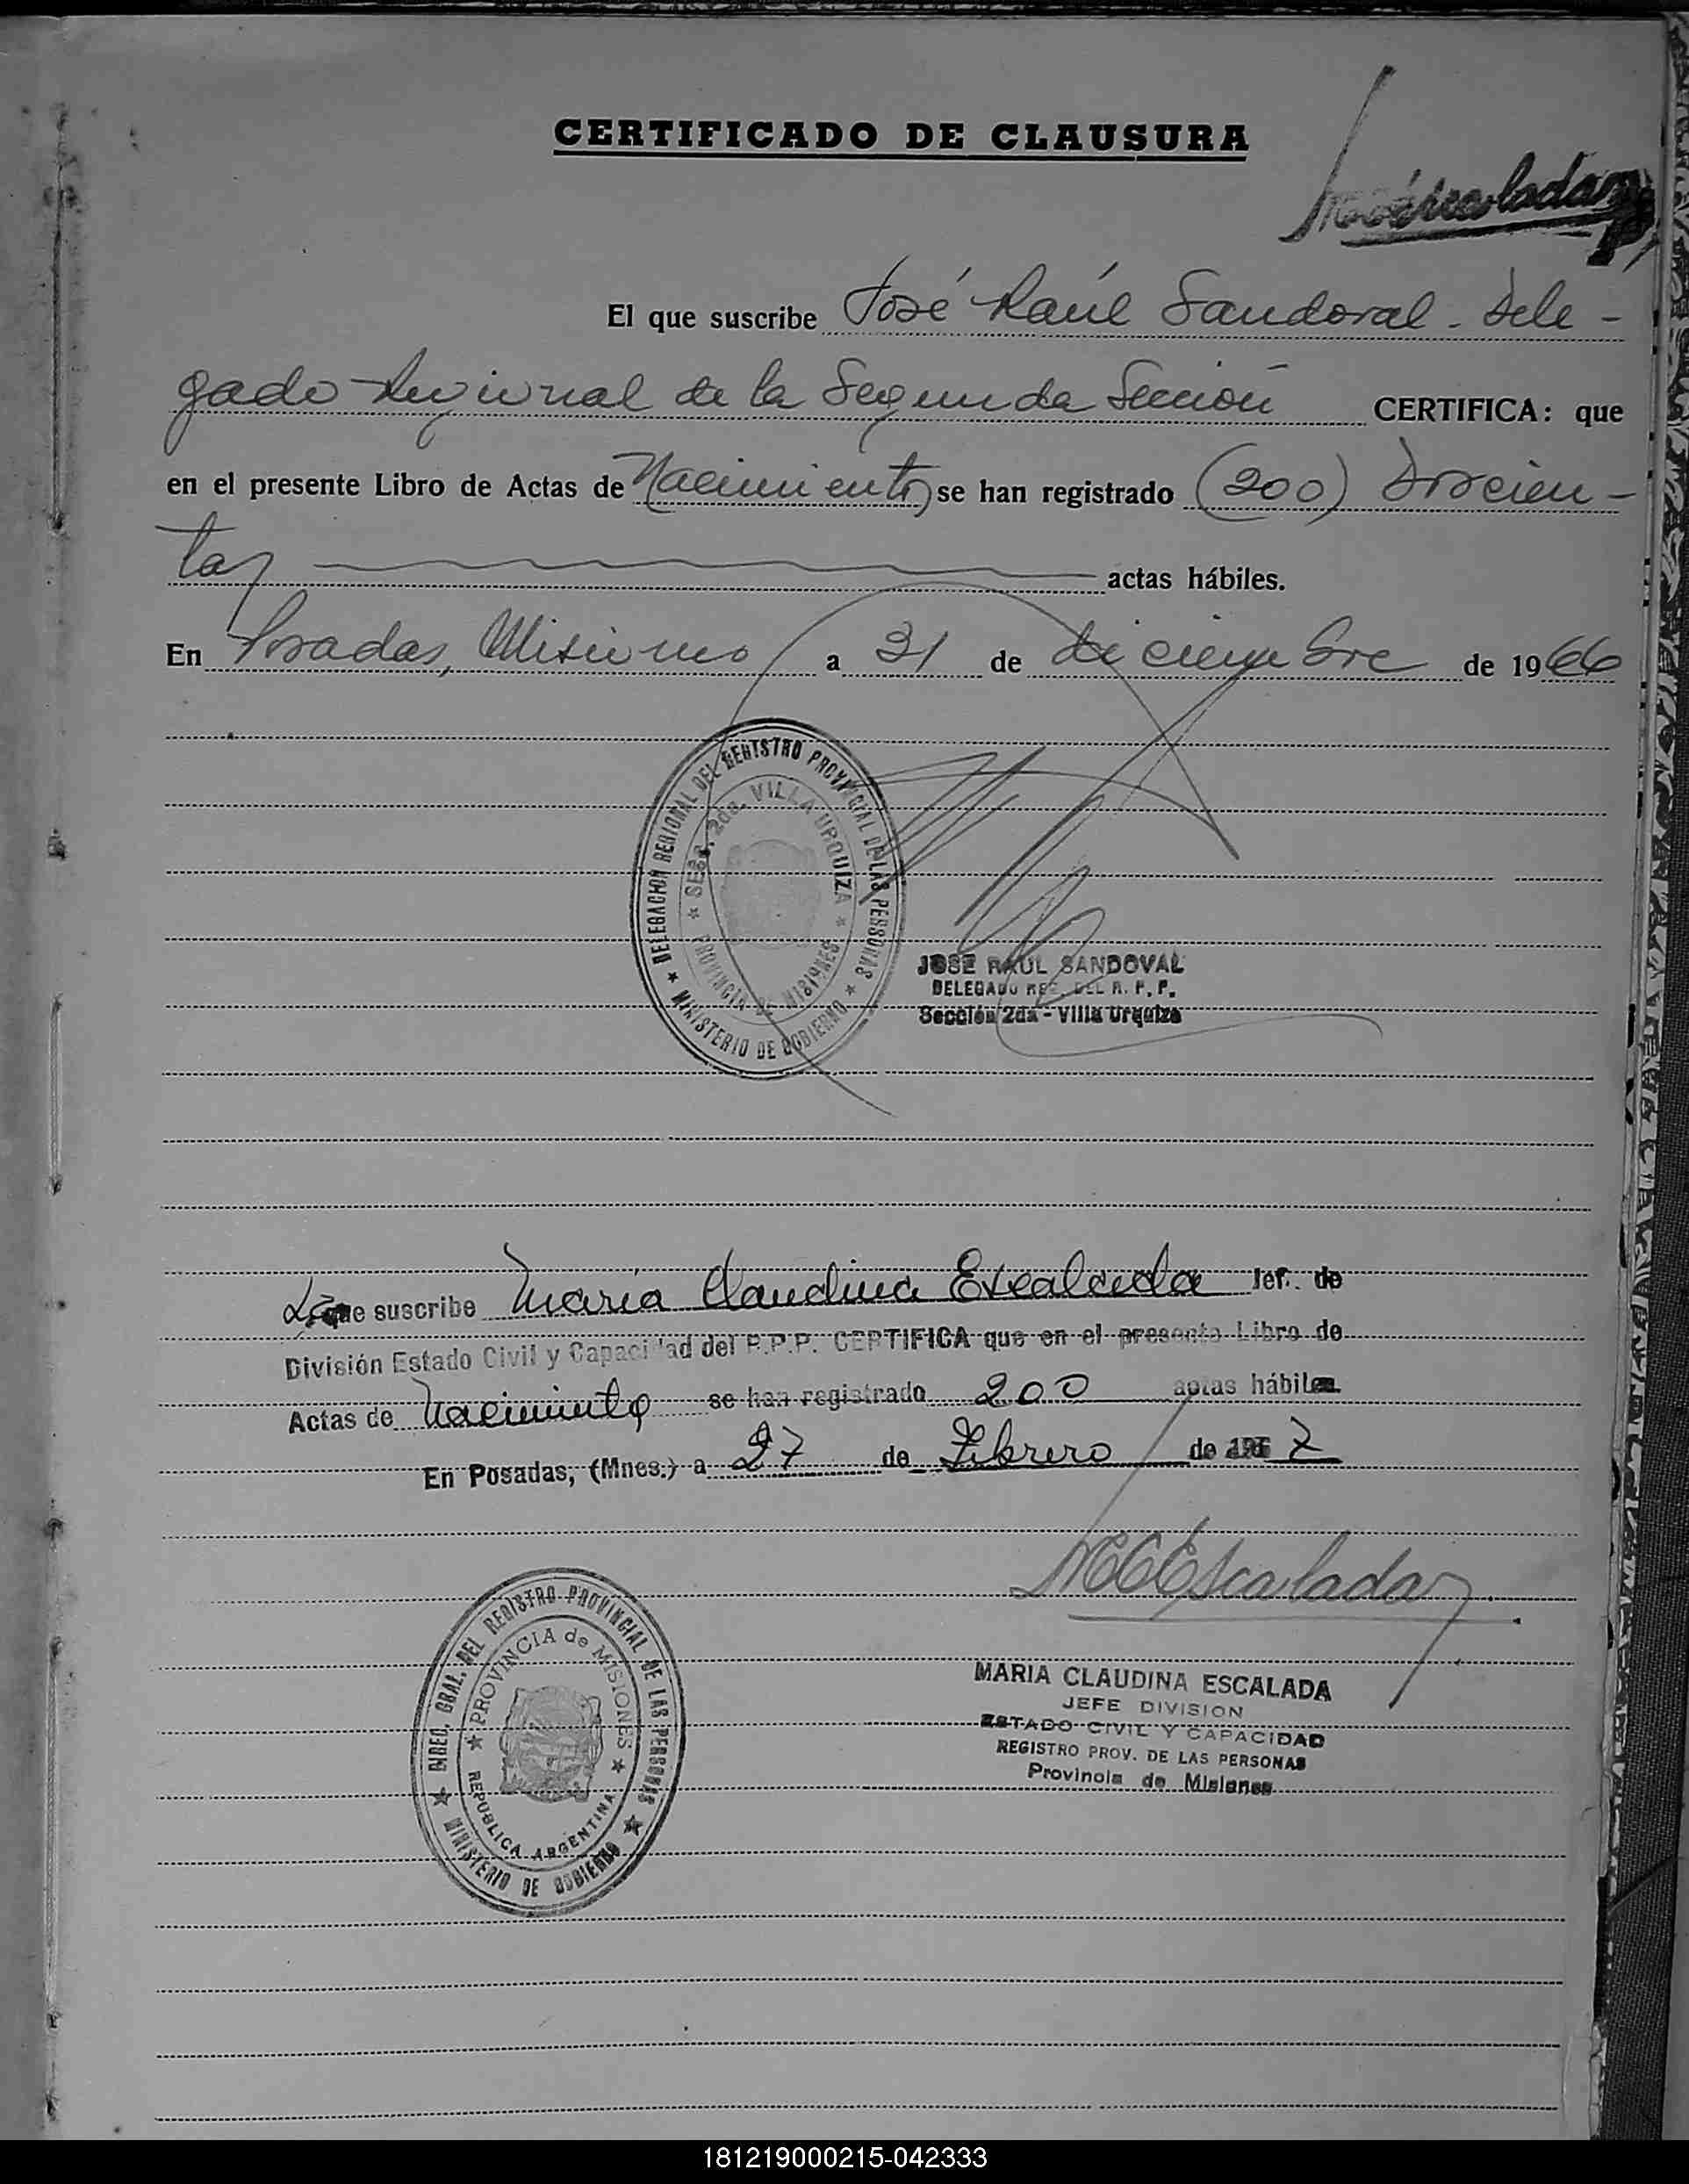 CERTIFICADO DE CLAUSURA
El que suscribe José Raúl Sandoval - Dele-
gado Regional de la Segunda Sección CERTIFICA: que
en el presente Libro de Actas de Nacimiento se han registrado (200) Doscien-
tas actas hábiles.
En Posadas, Misiones a 31 de diciembre de 1966
DELEGACION REGIONAL DEL REGISTRO PROVINCIAL DE LAS PERSONAS
SECC. 2da. VILLA URQUIZA
PROVINCIA DE MISIONES
MINISTERIO DE GOBIERNO
JOSE RAUL SANDOVAL
DELEGADO REG. DEL R. P. P.
Sección 2da - Villa Urquiza
La que suscribe María Claudina Escalada Jef. de
División Estado Civil y Capacidad del R.P.P. CERTIFICA que en el presente Libro de
Actas de Nacimiento se han registrado 200 actas hábiles.
En Posadas, (Mnes.) a 27 de Febrero de 1967
MCEscalada
DIREC. GRAL. DEL REGISTRO PROVINCIAL DE LAS PERSONAS
PROVINCIA de MISIONES
REPUBLICA ARGENTINA
MINISTERIO DE GOBIERNO
MARIA CLAUDINA ESCALADA
JEFE DIVISION
ESTADO CIVIL Y CAPACIDAD
REGISTRO PROV. DE LAS PERSONAS
Provincia de Misiones
181219000215-042333